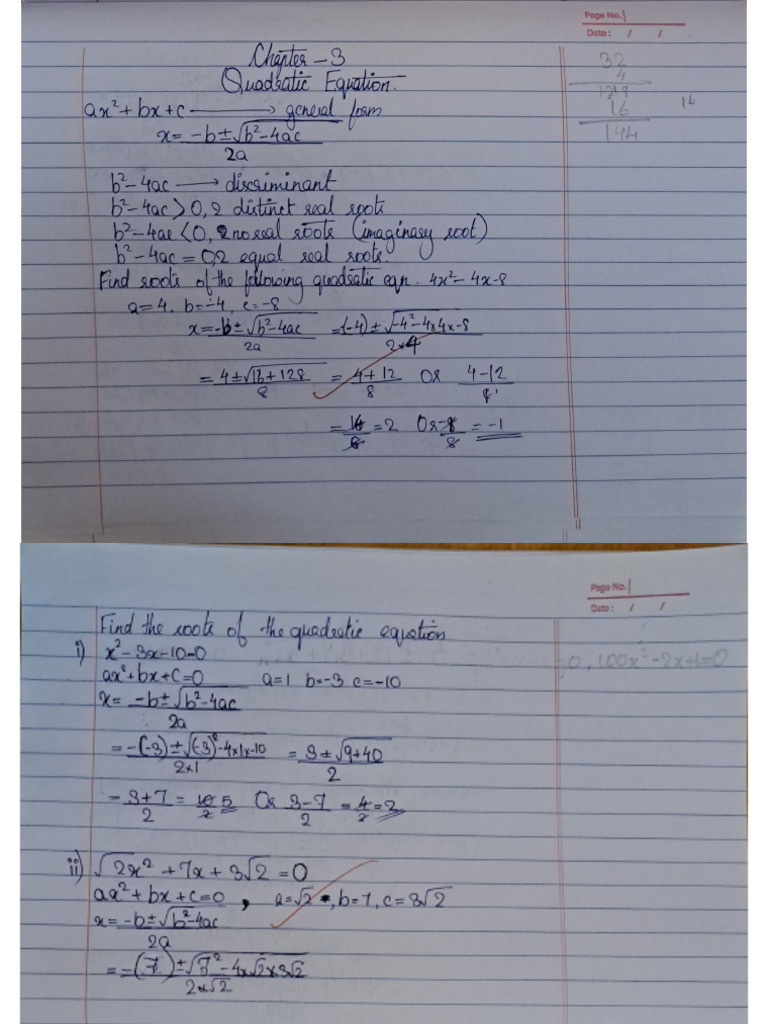 Page No.
Date: / /
Chapter - 3
Quadratic Equation.
32
4
16
144
14
ax² + bx + c → general form
x = -b ± √b² - 4ac
2a
b² - 4ac → discriminant
b² - 4ac > 0, 2 distinct real roots
b² - 4ac < 0, no real roots (imaginary root)
b² - 4ac = 0, 2 equal real roots
Find roots of the following quadratic eqn. 4x² - 4x - 8
a = 4. b = -4. c = -8
x = -b ± √b² - 4ac = (-4) ± √-4² - 4x4x-8
2a 2x4
= 4 ± √16 + 128 = 4 + 12 Or 4 - 12
8 8 8
= 16 = 2 Or -8 = -1
8 8
Page No.
Date: / /
Find the roots of the quadratic equation
i) x² - 3x - 10 = 0
0, 100x² - 2x + 1 = 0
ax² + bx + c = 0 a = 1 b = -3 c = -10
x = -b ± √b² - 4ac
2a
= -(-3) ± √(-3)² - 4x1x-10 = 3 ± √9 + 40
2x1 2
- 3 + 7 = 10 5 Or 3 - 7 = 4 = 2
2 2 2 2
ii) √2x² + 7x + 3√2 = 0
ax² + bx + c = 0, a = √2, b = 7, c = 3√2
x = -b ± √b² - 4ac
2a
= -(7) ± √7² - 4x√2x3√2
2x√2